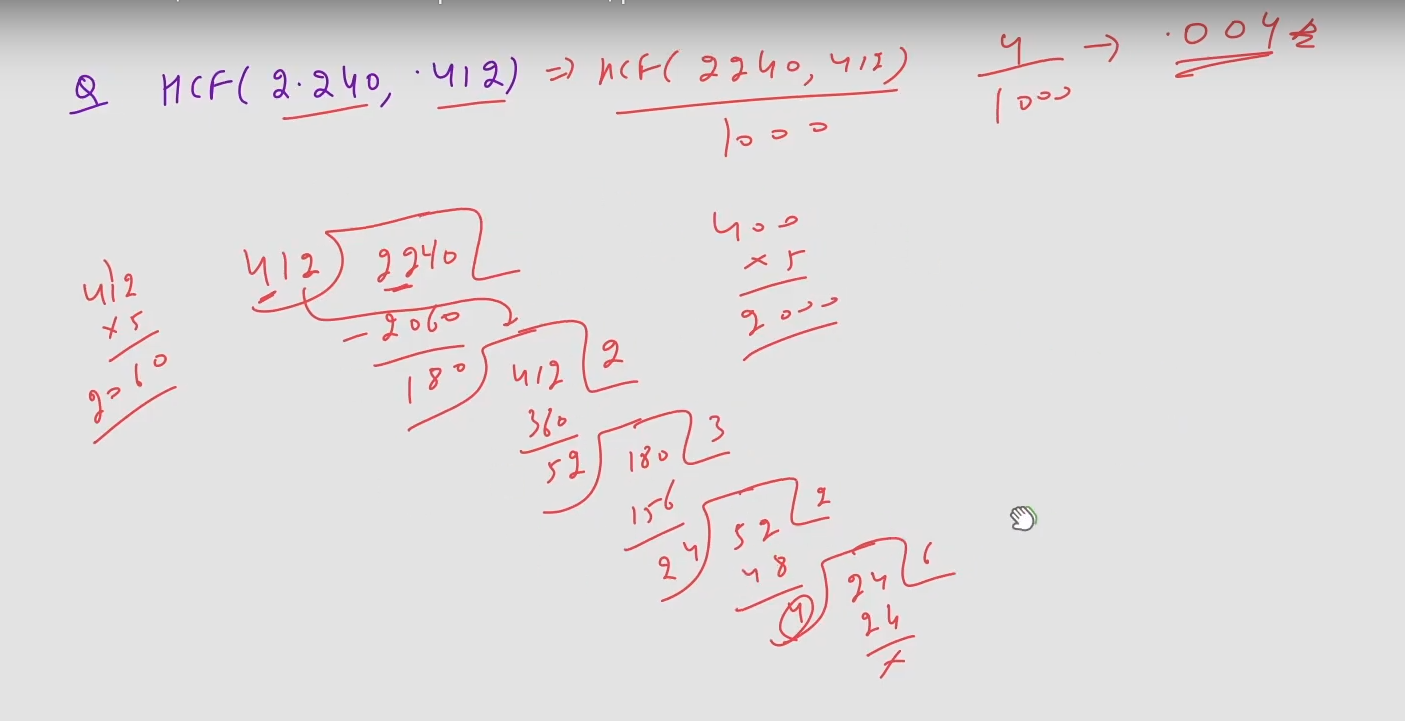 Q HCF(2.240, .412) => HCF(2240, 412) / 1000 4/1000 → .004
412 × 5 2060
412) 2240
- 2060
180) 412 (2
360
52) 180 (3
156
24) 52 (2
48
4) 24 (6
24
×
400
× 5
2000